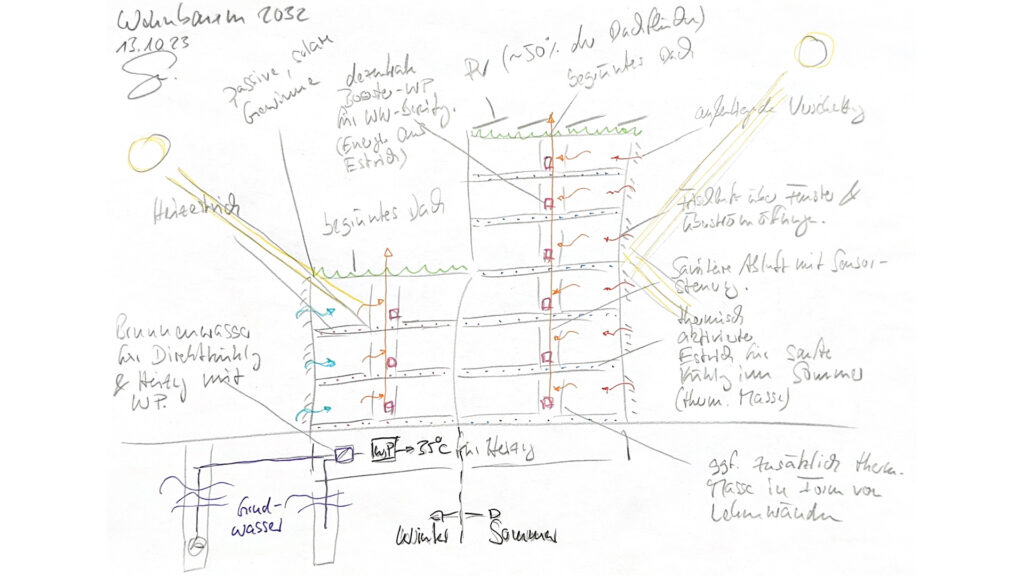 Wohnbauen 2032
13.10.23
passive, solare
Gewinne
dezentrale
Booster-WP
für WW-Bereitg.
(Energie aus
Estrich)
PV (~50% der Dachfläche)
begrüntes Dach
außenliegende Verschattg
Heizestrich
begrüntes Dach
Frischluft über Fenster &
Sanitäre Abluft mit Sensor-
steuerung.
thermisch
aktivierter
Estrich für sanfte
Kühlg im Sommer
(therm. Masse)
Brunnenwasser
für Direktkühlg
& Heizg mit
WP.
WP
35°C für Heizg
Grund-
wasser
ggf. zusätzlich therm.
Masse in Form von
Lehmwänden
Winter
Sommer